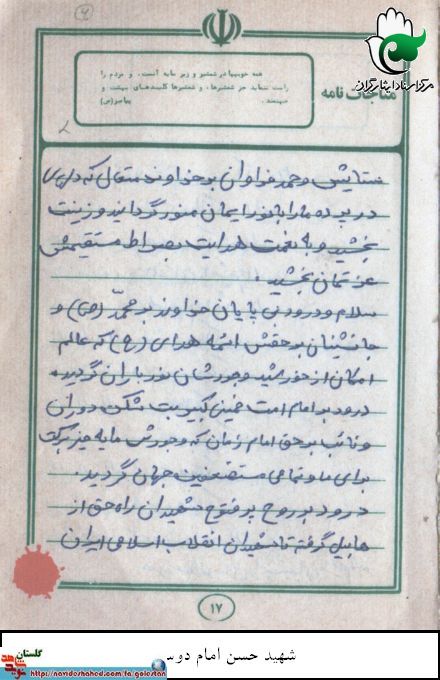 مرکز اسناد ایثارگران
مناجات نامه
همه خوبیها در شمشیر و زیر سایه آنست، و مردم را
راست ننماید جز شمشیرها، و شمشیرها کلیدهای بهشت و
جهنمند. پیامبر(ص)
ستایش و حمد فراوان بر خداوند متعال که دلهای
در پرده ما را با نور ایمان منور گردانید و زینت
بخشید و به نعمت هدایت بصراط مستقیمش
عزتمان بخشید.
سلام و درود بی پایان خداوند بر محمد (ص) و
جانشینان بر حقش ائمه هدای (ع) که عالم
امکان از خورشید وجودشان نور باران گردید.
درود بر امام امت خمینی کبیر بت شکن دوران
و نائب بر حق امام زمان که وجودش مایه خیر و برکت
برای ما و تمامی مستضعفین جهان گردید.
درود بر روح پر فتوح شهیدان راه حق از
هابیل گرفته تا شهیدان انقلاب اسلامی ایران
۱۷
شهید حسن امام دوس
گلستان
نوید شاهد
https://navideshahed.com/fa/golestan